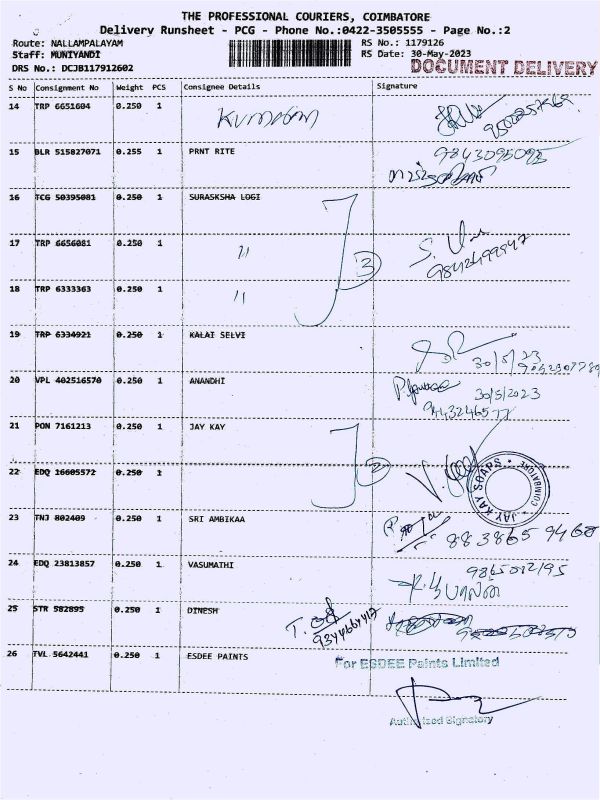 THE PROFESSIONAL COURIERS, COIMBATORE
Delivery Runsheet - PCG - Phone No.:0422-3505555 - Page No.:2
Route: NALLAMPALAYAM RS No.: 1179126
Staff: MUNIYANDI RS Date: 30-May-2023
DRS No.: DCJB117912602 DOCUMENT DELIVERY
S No Consignment No Weight PCS Consignee Details Signature
14 TRP 6651604 0.250 1 Kumaran
15 BLR 515827071 0.255 1 PRNT RITE 9843095095
16 TCG 50395081 0.250 1 SURASKSHA LOGI
17 TRP 6656081 0.250 1 " 3
9842499547
18 TRP 6333363 0.250 1 "
19 TRP 6334921 0.250 1 KALAI SELVI
30/5/23
20 VPL 402516570 0.250 1 ANANDHI 30/5/2023
9443246577
21 PON 7161213 0.250 1 JAY KAY
22 EDQ 16605572 0.250 1 2
JAY KAY SOAPS * COIMBATORE *
23 TNJ 802409 0.250 1 SRI AMBIKAA
883865 9460
24 EDQ 23813857 0.250 1 VASUMATHI 9865012195
25 STR 582895 0.250 1 DINESH
26 TVL 5642441 0.250 1 ESDEE PAINTS For ESDEE Paints Limited
Authorized Signatory